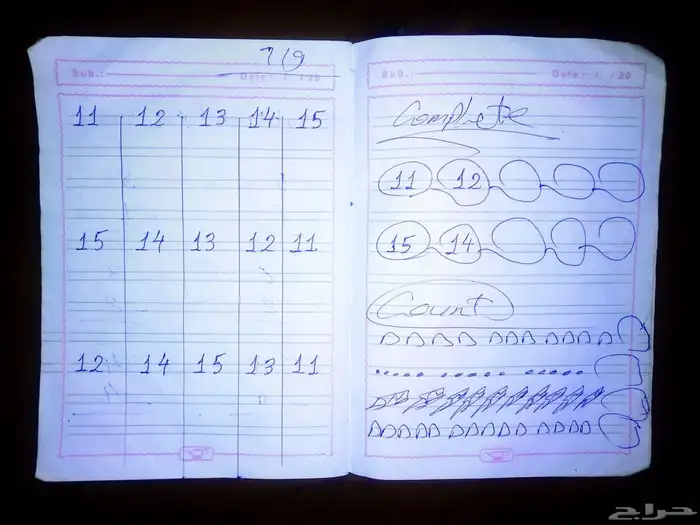 7/9
Sub.: Date: / / 20
11 12 13 14 15
15 14 13 12 11
12 14 15 13 11
Sub.: Date: / / 20
Complete
11 12
15 14
Count
حراج